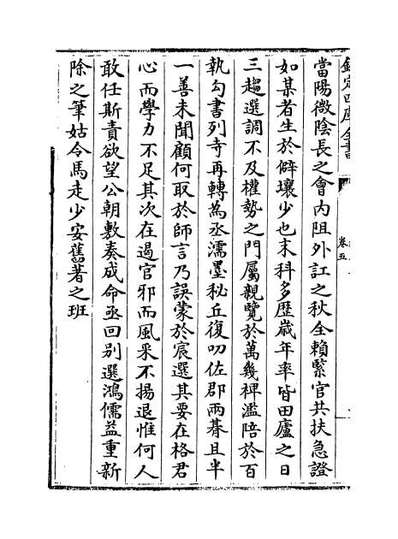 欽定四庫全書
卷五
當陽微陰長之會内阻外訌之秋全賴繫官共扶急證
如某者生於僻壤少也末科多歴歳年率皆田廬之日
三趨選調不及權勢之門屬親覽於萬幾裨濫陪於百
執勾書列寺再轉為丞濡墨秘丘復叨佐郡兩朞且半
一善未聞顧何取於師言乃誤蒙於宸選其要在格君
心而學力不足其次在遏官邪而風采不揚退惟何人
敢任斯責欲望公朝敷奏成命亟回别選鴻儒益重新
除之筆姑令馬走少安舊著之班